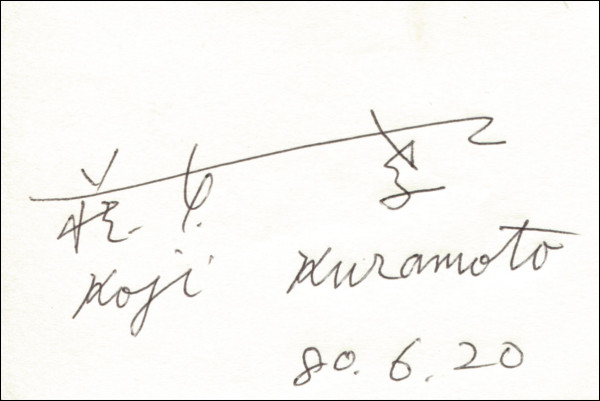 Koji Kuramoto
80. 6. 20